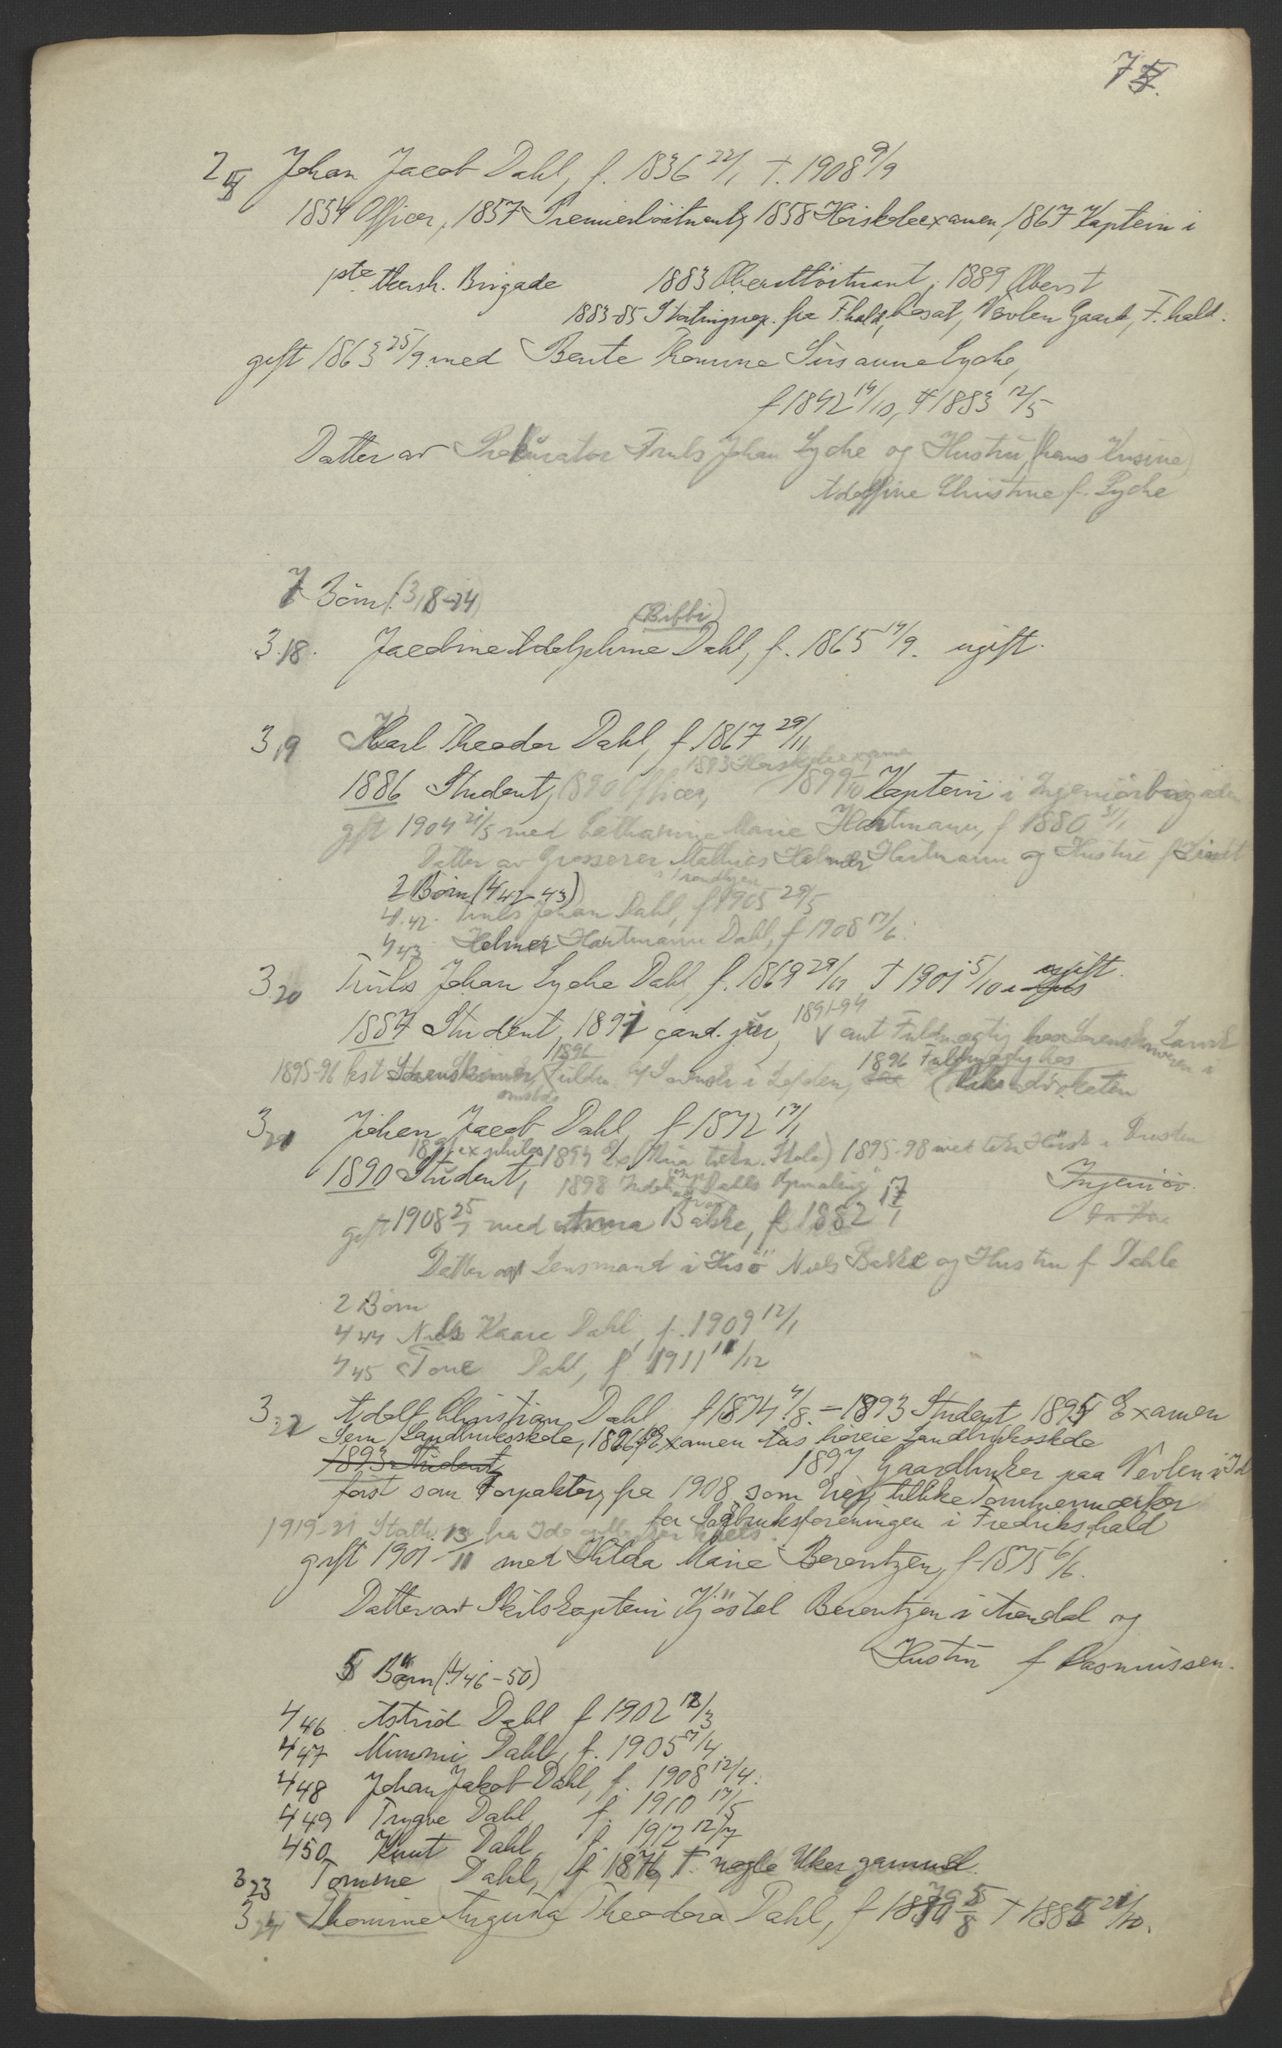 7
2 Johan Jacob Dahl, f. 1836 22/1 † 1908 9/9
1854 Officer, 1857 Premierlöitnant, 1858 Höiskoleexamen, 1867 Kaptein i
1ste Akersh. Brigade 1883 Oberstlöitnant, 1889 Oberst
1883-85 Stortingsrep. fra F.hald, bosat, Vevlen Gaard, F.hald.
gift 1863 25/9 med Bente Thomine Susanne Lyche,
f 1842 14/10, † 1883 12/5
Datter av Prokurator Truls Johan Lyche og Hustru, (hans Kusine)
Adolfine Christine f. Lyche
7 Börn (3,18-24)
(Bibbi)
3.18. Jacobine Adolphine Dahl, f. 1865 14/9. ugift.
3 19 Karl Theodor Dahl, f 1867 29/11
1893 Höiskoleexamen
1886 Student, 1890 Officer, 1899 Kaptein i Ingeniörbrigaden
gift 1904 21/5 med Cathrine Marie Hartmann, f 1880 31/1
Datter av Grosserer Mathias Helmer Hartmann og Hustru f
i Trondhjem
2 Börn (4 42-43)
4.42. Truls Johan Dahl, f 1905 29/5
4 43 Helmer Hartmann Dahl, f 1908 17/6.
3 20 Truls Johan Lyche Dahl, f. 1869 29/11 † 1901 5/10 ugift.
1891-94
1887 Student, 1891 cand. jur, ant Fuldmægtig hos Sorenskriveren i
1896 1896 Fuldmægtig hos
1895-96 Sorenskriver, i
3 21 Johan Jacob Dahl f 1872 17/1
1891 ex philos 1894 Ex (Kria tekn. Skole) 1895-98 ved tekn Höisk i
1890 Student, 1898 Ingeniör.
gift 1908 25/7 med Anna Bakke, f 1882 17/1
Datter av Lensmand i Niels Bakke og Hustru f Dahle
2 Börn
4 44 Niels Kaare Dahl, f. 1909 12/1
4 45 Tove Dahl, f 1911 11/12
3 22 Adolf Christian Dahl f 1874 4/8. - 1893 Student, 1895 Examen
Sem Landbruksskole, 1896 Examen Aas höiere Landbruksskole
1893 Student, 1897 Gaardbruker paa Vevlen i Id
först som Forpakter, fra 1908 som Eier, tillike Tommermærker
for Sagbruksforeningen i Fredrikshald
1919-21 fra Id
gift 1901 13/11 med Hilda Marie Berentzen, f 1875 6/6.
Datter av Skibskaptein Kjöstel Berentzen i Arendal og
Hustru f Rasmussen.
5 Börn (4 46-50)
4 46 Astrid Dahl f 1902 12/3
4 47 Mimmi Dahl, f. 1905 17/4
4 48 Johan Jakob Dahl, f. 1908 12/4.
4 49 Trygve Dahl f. 1910 17/5
4 50 Knut Dahl f. 1912 12/7
3 23 Tomine Dahl, f 1876, † nogle Uker gammel.
3 24 Thomine Augusta Theodora Dahl, f 1879 5/8 † 1885 21/10.